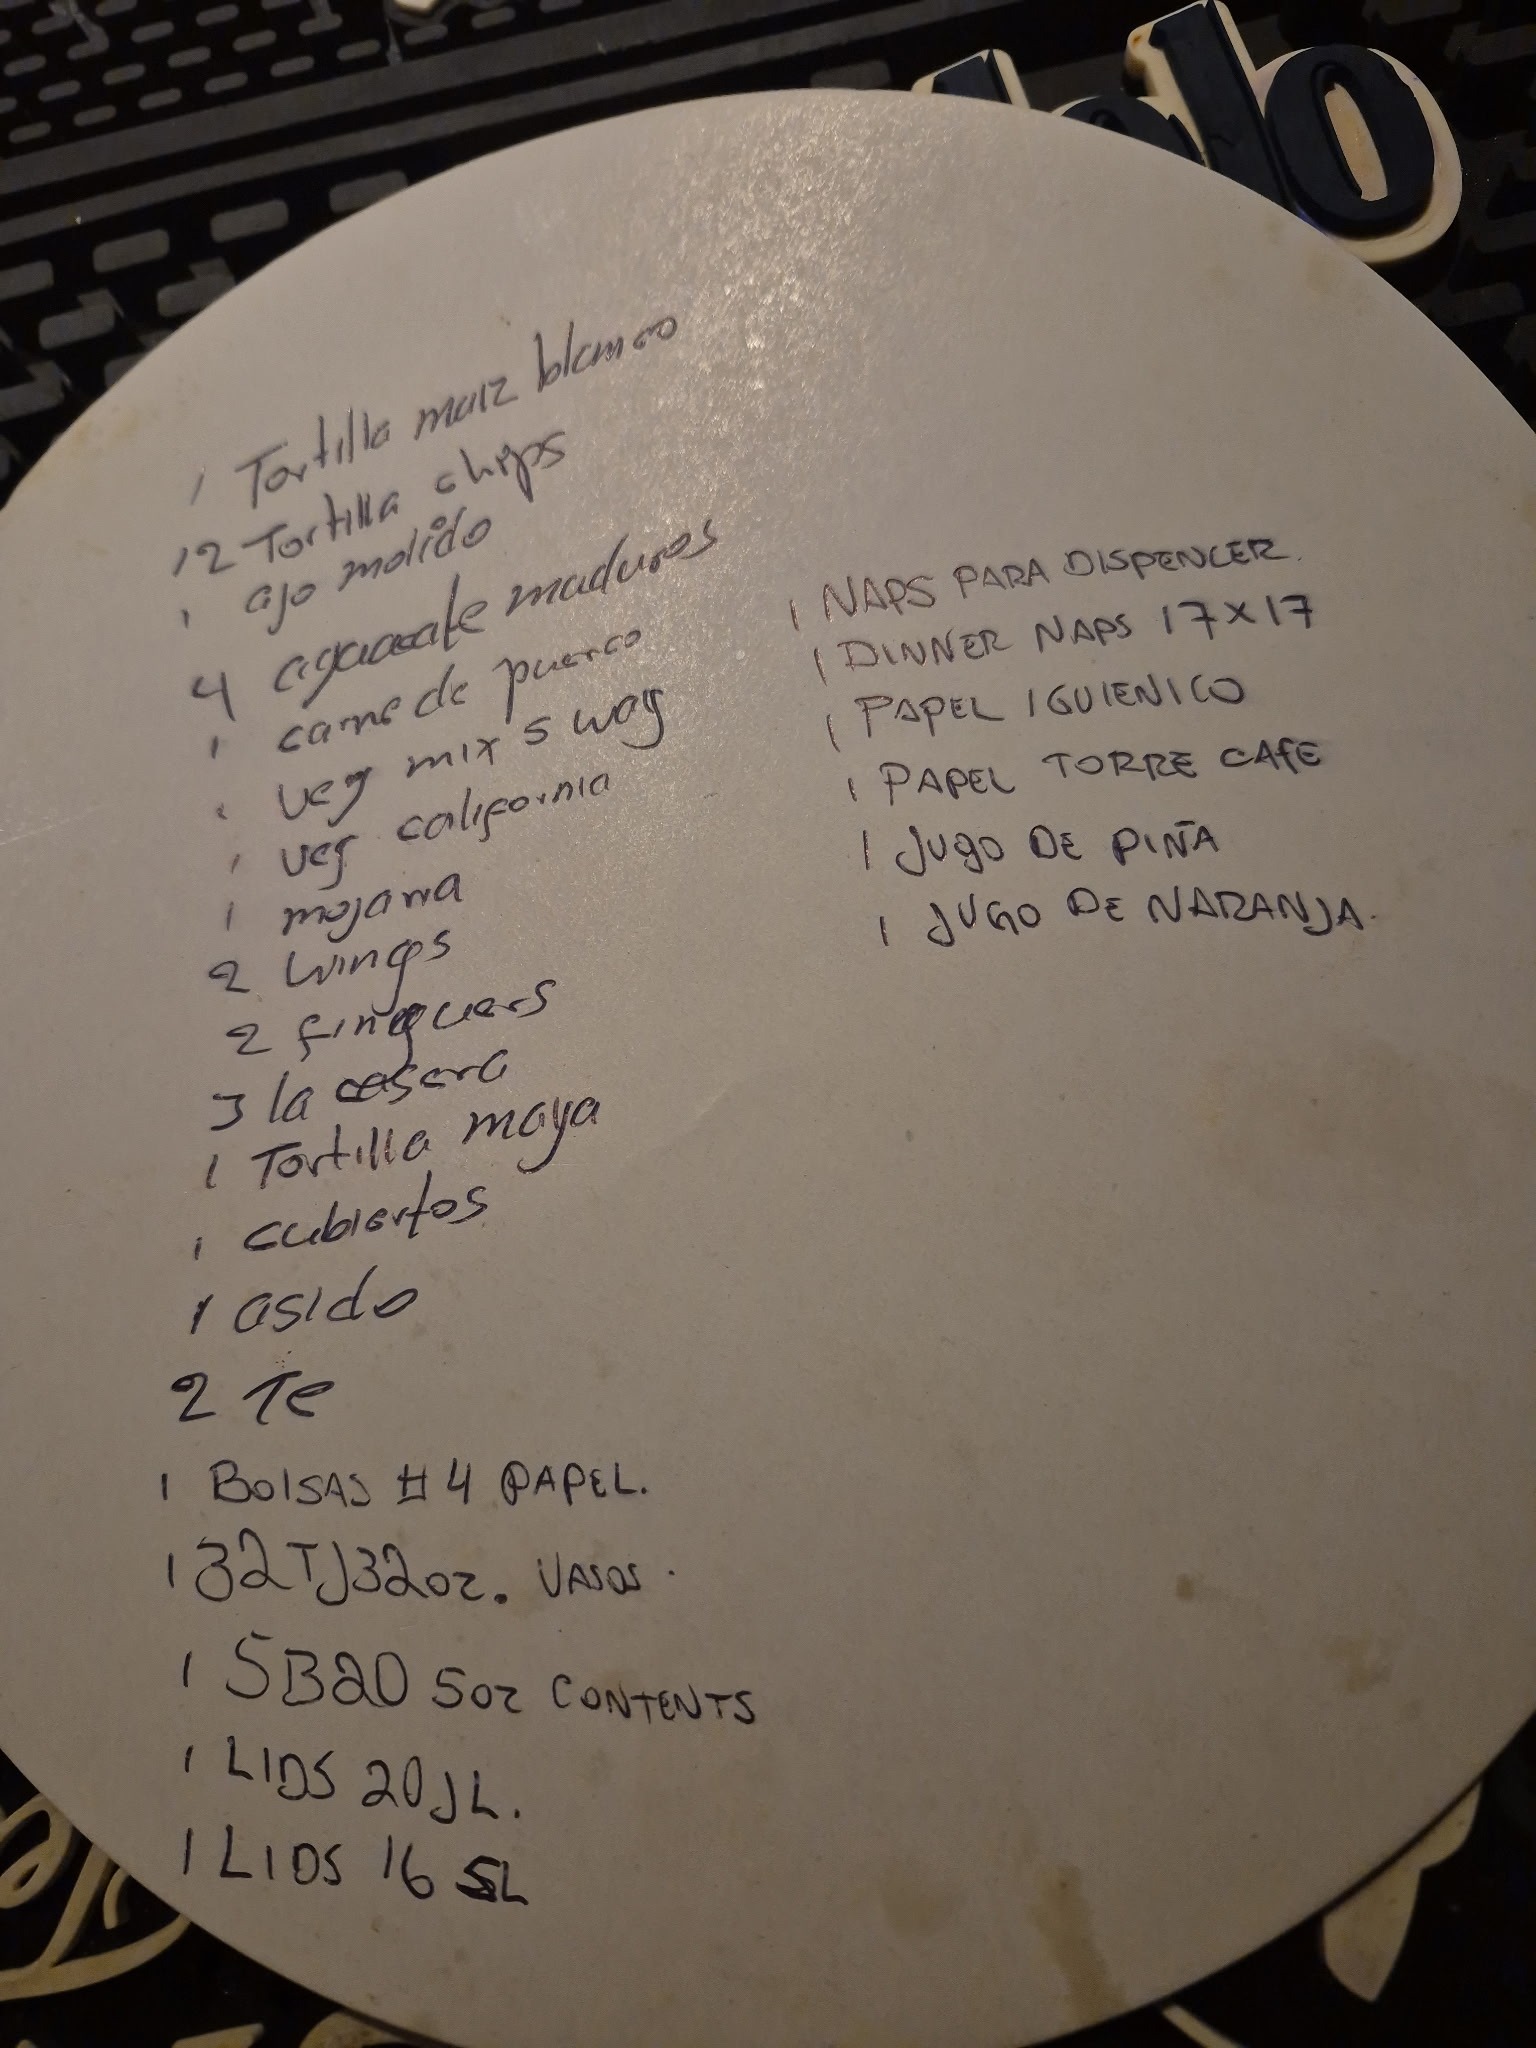 1 Tortilla maiz blanco
12 Tortilla chips
1 ajo molido
4 aguacate maduros
1 carne de puerco
1 veg mix 5 way
1 veg california
1 mojarra
2 wings
2 finguers
3 la casera
1 Tortilla maya
1 cubiertos
1 asido
2 Te
1 BOLSAS #4 PAPEL.
1 32TJ32oz. VASOS.
1 SB20 5oz CONTENTS
1 LIDS 20JL.
1 LIDS 16 SL
1 NAPS PARA DISPENCER.
1 DINNER NAPS 17x17
1 PAPEL IGUIENICO
1 PAPEL TORRE CAFE
1 JUGO DE PIÑA
1 JUGO DE NARANJA.